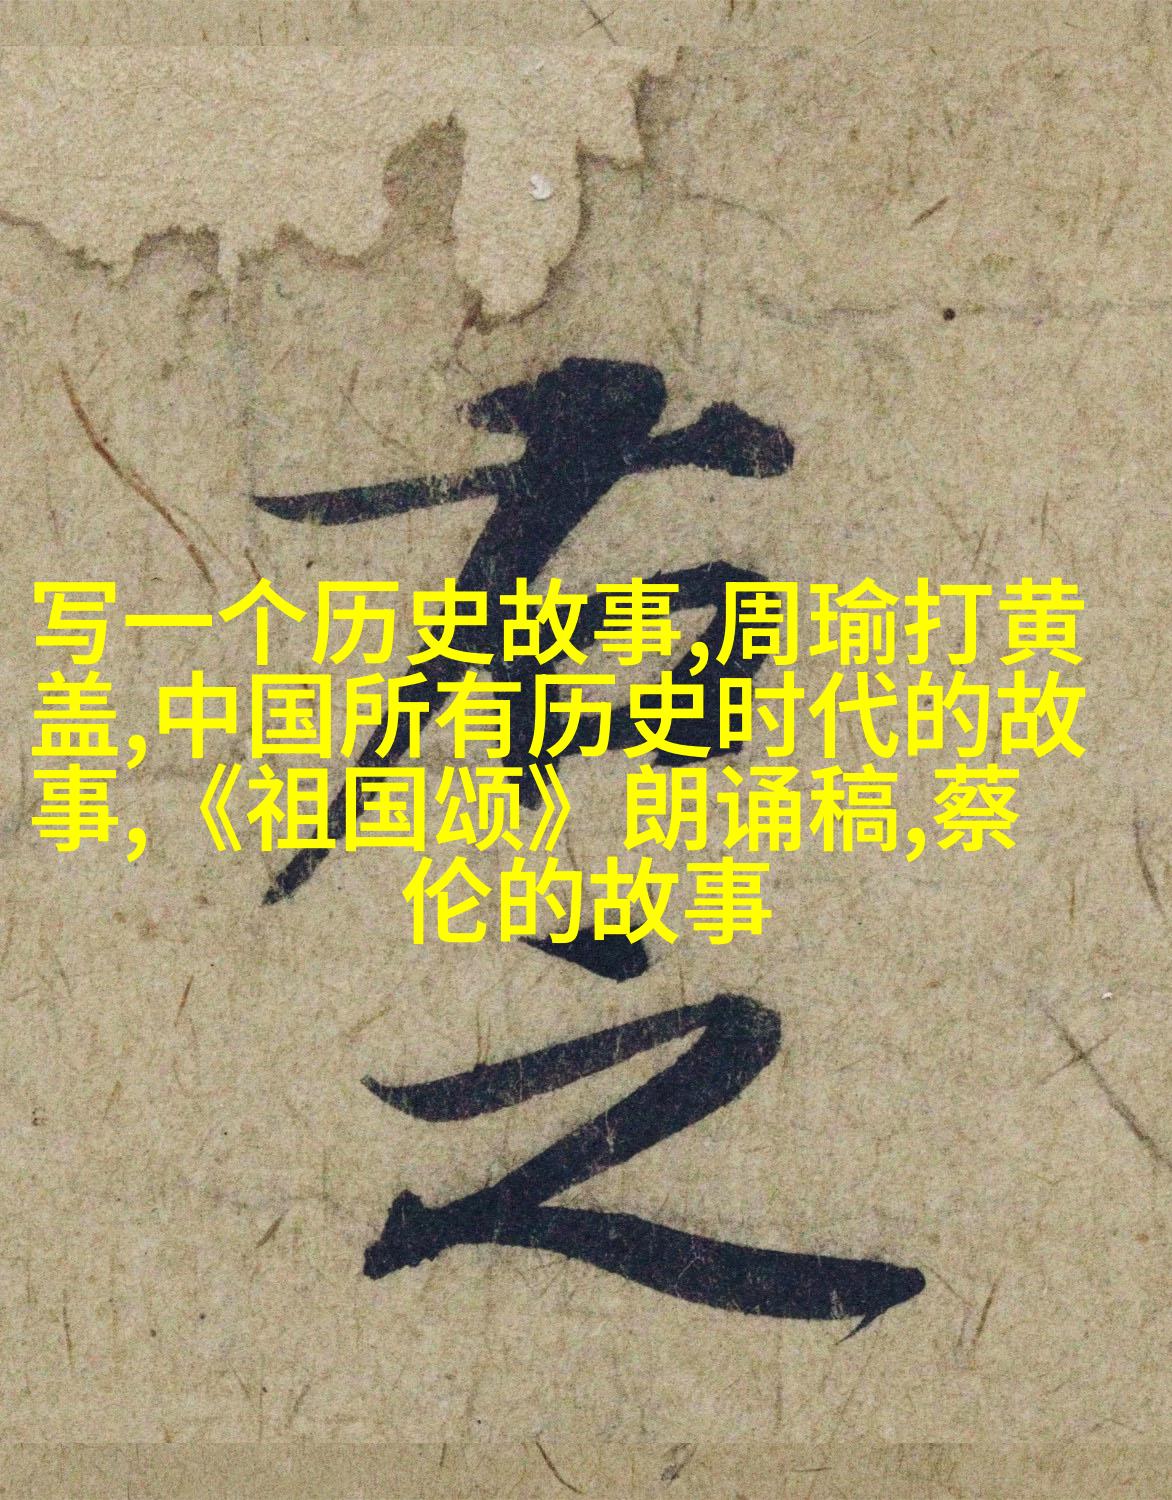 写一个历史故事,周瑜打黄
盖,中国所有历史时代的故
事,《祖国颂》朗诵稿,蔡
伦的故事